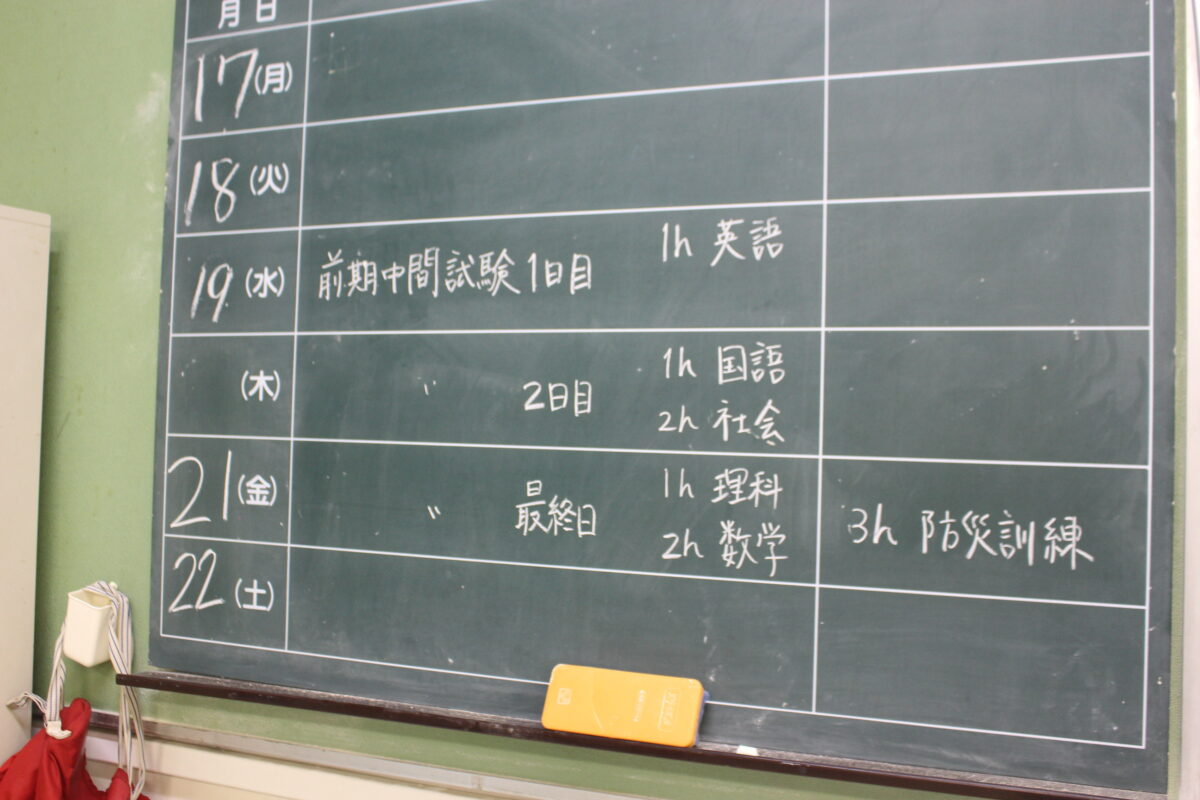 月 日
17 (月)
18 (火)
19 (水) 前期中間試験 1日目 1h 英語
(木) 〃 2日目 1h 国語
2h 社会
21 (金) 〃 最終日 1h 理科
2h 数学 3h 防災訓練
22 (土)